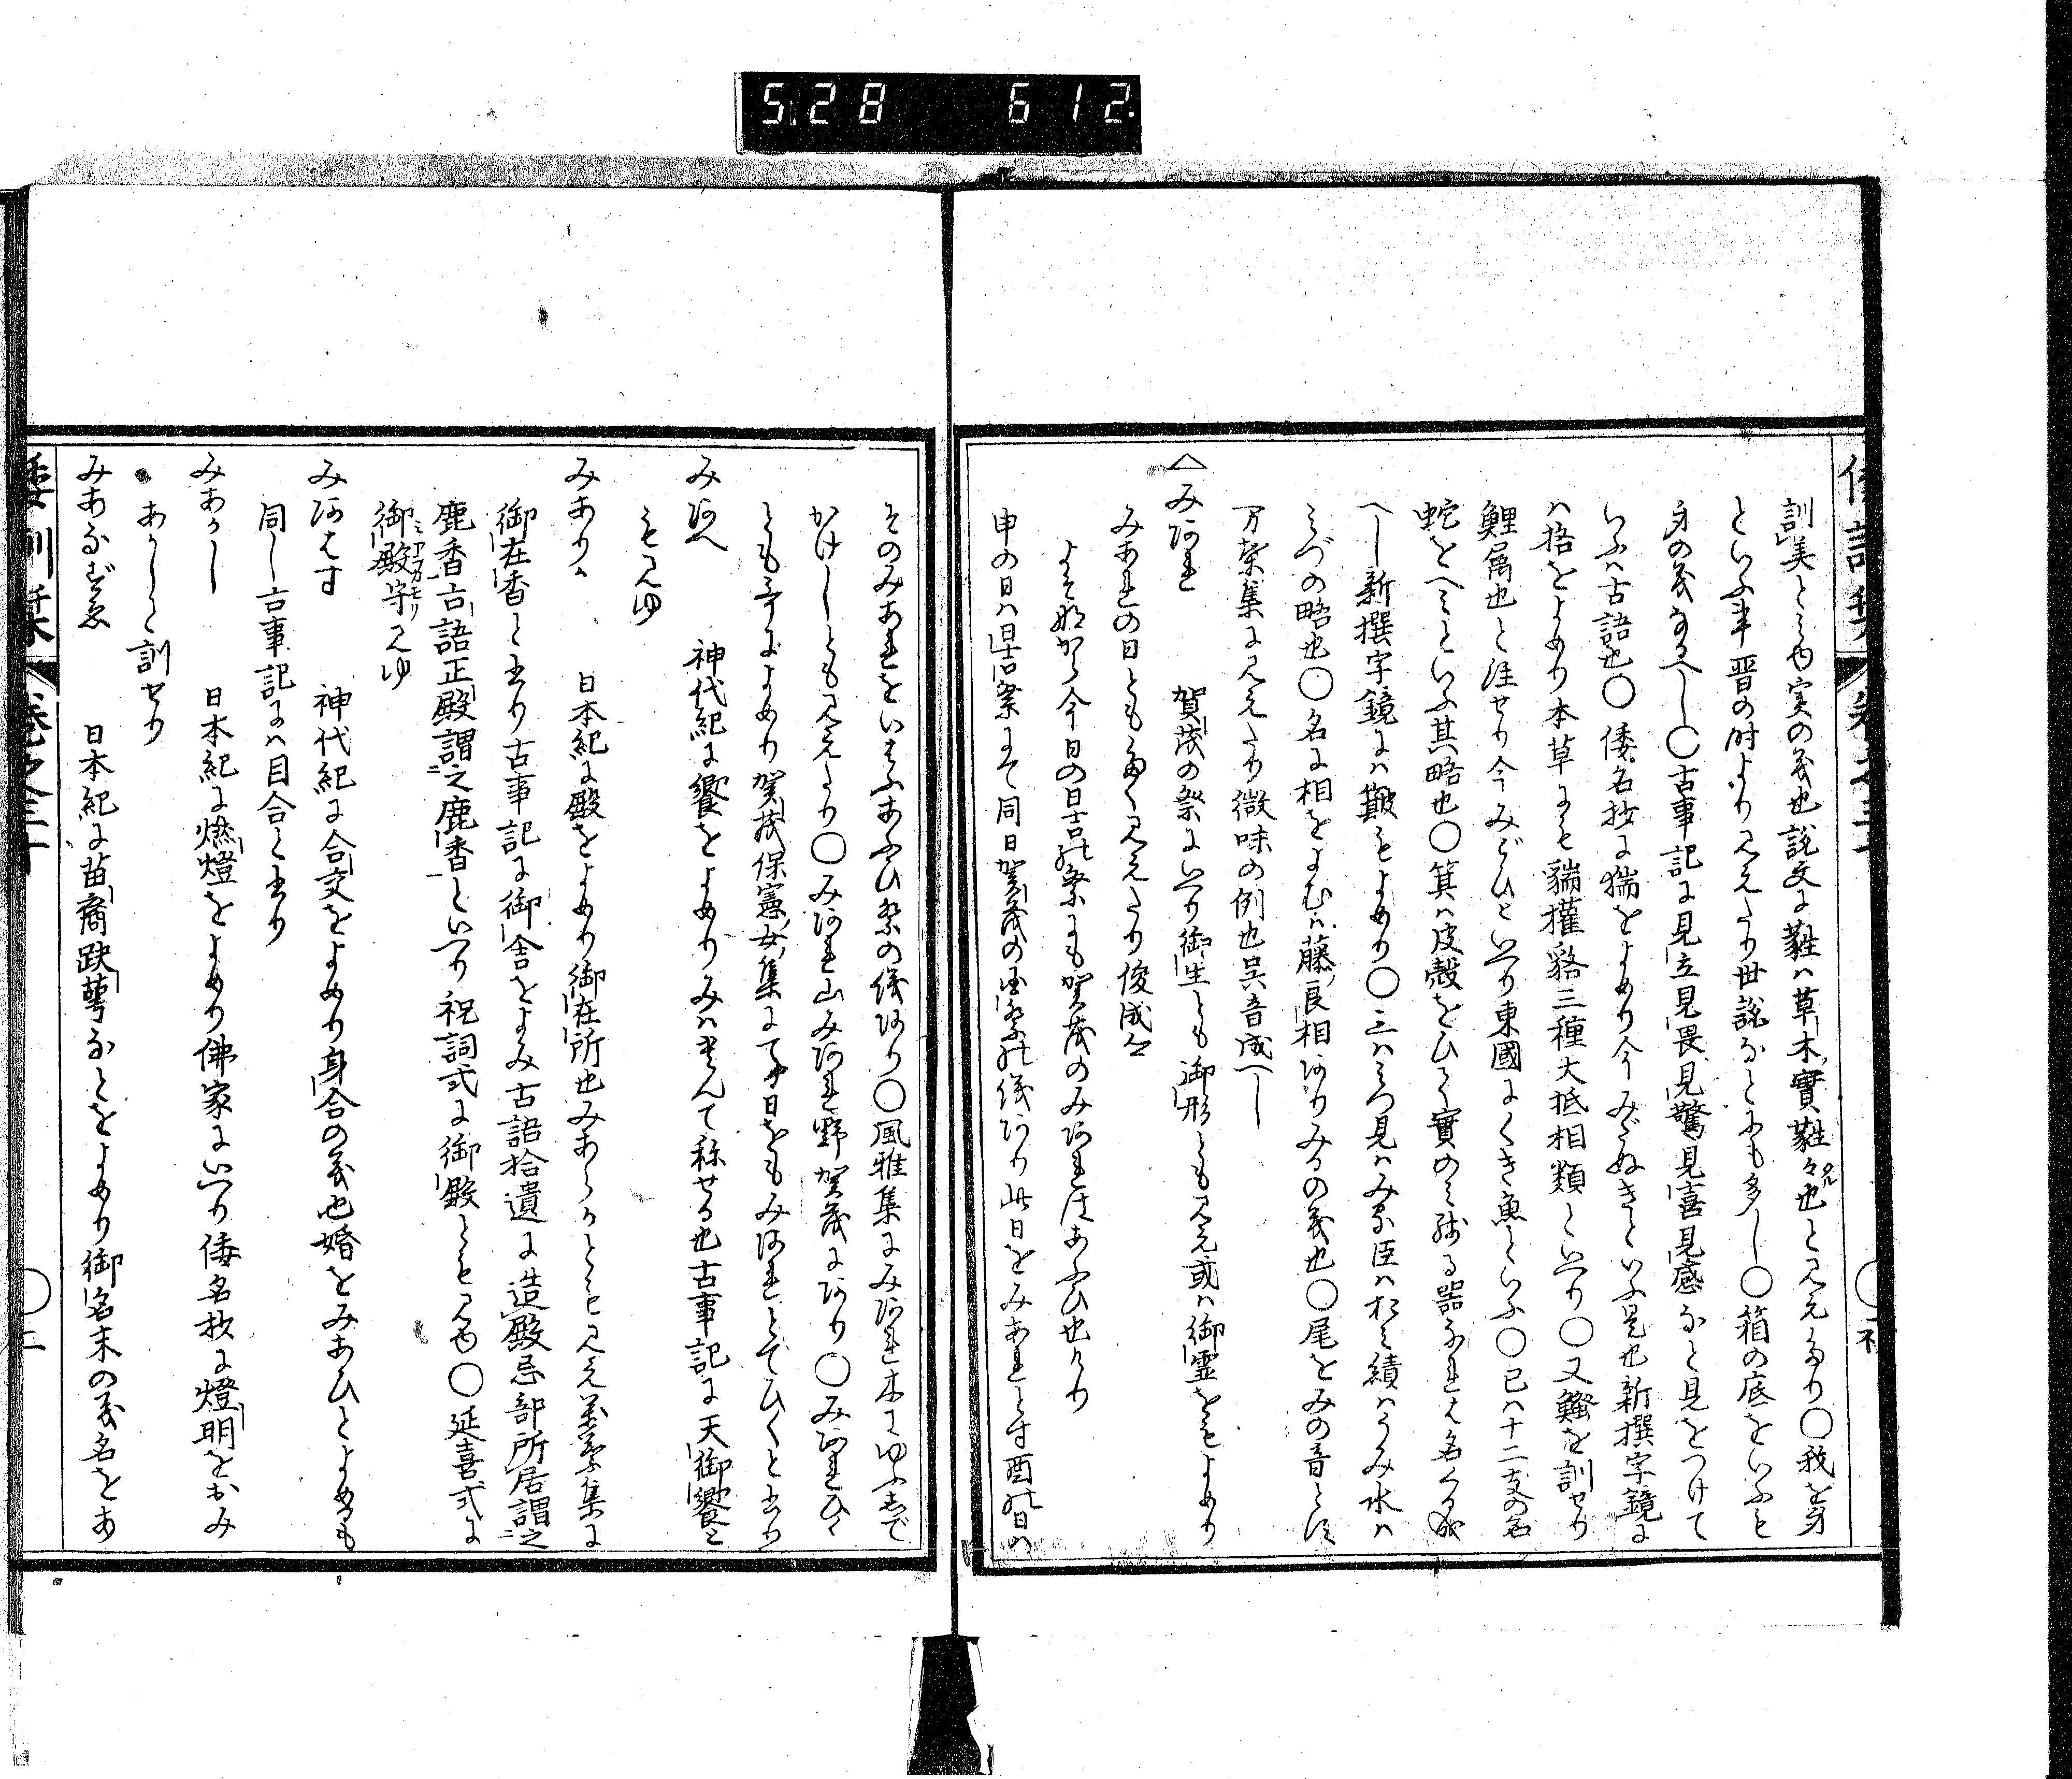 5.28 612.
訓美とみゆ実の義也説文に蘳ハ草木ノ實蘳々也とみえたり〇我を身
といふ事晋の時よりみえたり世説なとにも多し〇箱の底をいふも
身の義なるへし〇古事記に見立見畏見驚見喜見感なと見をつけて
いふハ古語也〇倭名抄に猯をよめり今みだぬきといふ是也新撰字鏡に
ハ狢をよめり本草にも猯獾狢三種大抵相類といへり〇又鰡を訓せり
鯉属也と注せり今みごひといへり東國にくき魚といふ〇巳ハ十二支の名
蛇をへみといふ其略也〇箕ハ皮殻をひて實のみ残る器なれは名くる成
へし新撰字鏡にハ簸もよめり〇三ハみつ見ハみる臣ハおみ績ハうみ水ハ
みづの略也〇名に相をよむハ藤ノ良相ありみるの義也〇尾をみの音とす
万葉集にみえたり微味の例也呉音成へし
△みあれ 賀茂の祭にいへり御生とも御形ともみえ或ハ御霊をもよめり
みあれの日とも多くみえたり俊成公
よそなから今日の日吉の祭にも賀茂のみあれはあふひ也けり
申の日ハ日吉祭にて同日賀茂の国祭の儀あり此日をみあれとす酉の日ハ
そのみあれをいはふあふひ祭の儀あり〇風雅集にみあれ木にゆふしで
かけしともみえたり〇みあれ山みあれ野賀茂にあり〇みあれひく
とも哥によめり賀茂保憲ノ女ノ集に子日をもみあれとてひくと書り
みあへ 神代紀に饗をよめりみハほめて称せる也古事記に天御饗と
もみゆ
みあらか 日本紀に殿をよめり御在所也みあらかともみえ万葉集に
御在香と書り古事記に御舎をよみ古語拾遺に造殿忌部所居謂之
鹿香古語正殿謂之鹿香といへり祝詞式に御殿ともみゆ〇延喜式に
御殿守ミアラカモリみゆ
みあはす 神代紀に合交をよめり身合の義也婚をみあひとよめるも
同し古事記にハ目合と書り
みあかし 日本紀に燃燈をよめり佛家にいへり倭名抄に燈明をおみ
あかしと訓せり
みあなずゑ 日本紀に苗裔跌萼なとをよめり御名末の義名をあ
倭訓栞 巻之三十 二